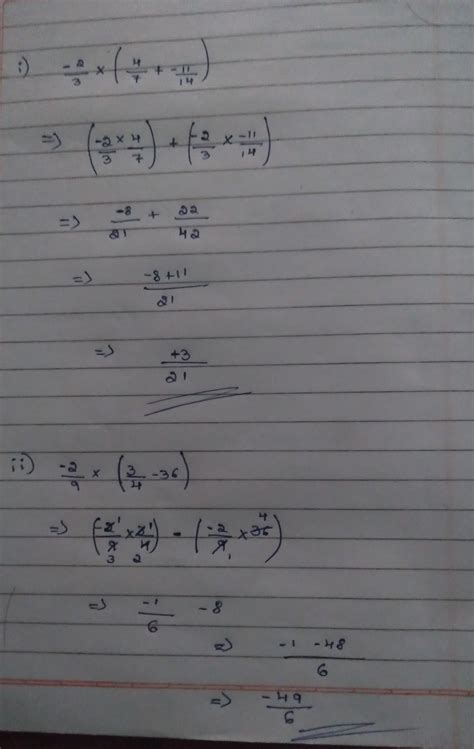 i) -2/3 × (4/7 + -11/14)
=> (-2/3 × 4/7) + (-2/3 × -11/14)
=> -8/21 + 22/42
=> -8+11/21
=> +3/21
ii) -2/9 × (3/4 - 36)
=> (-2 1/9 3 × 3 1/4 2) - (-2/9 1 × 36 4)
=> -1/6 -8
=> -1 -48/6
=> -49/6